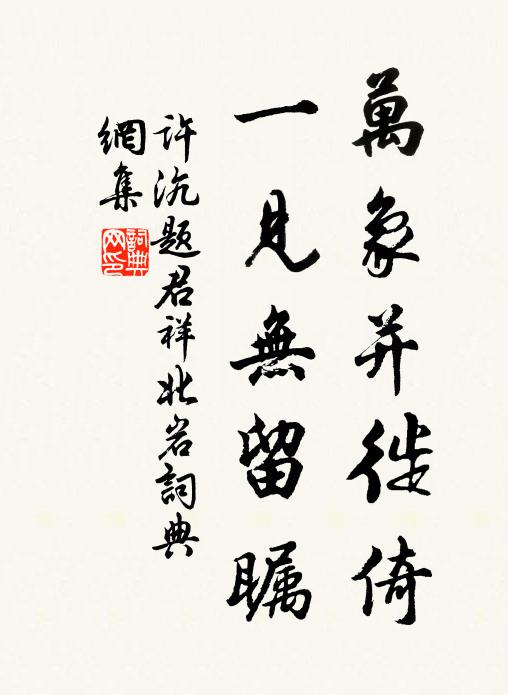 萬象并徙倚
一見無留瞩
许沆题君祥北岩詞典
網集
詞典
网印